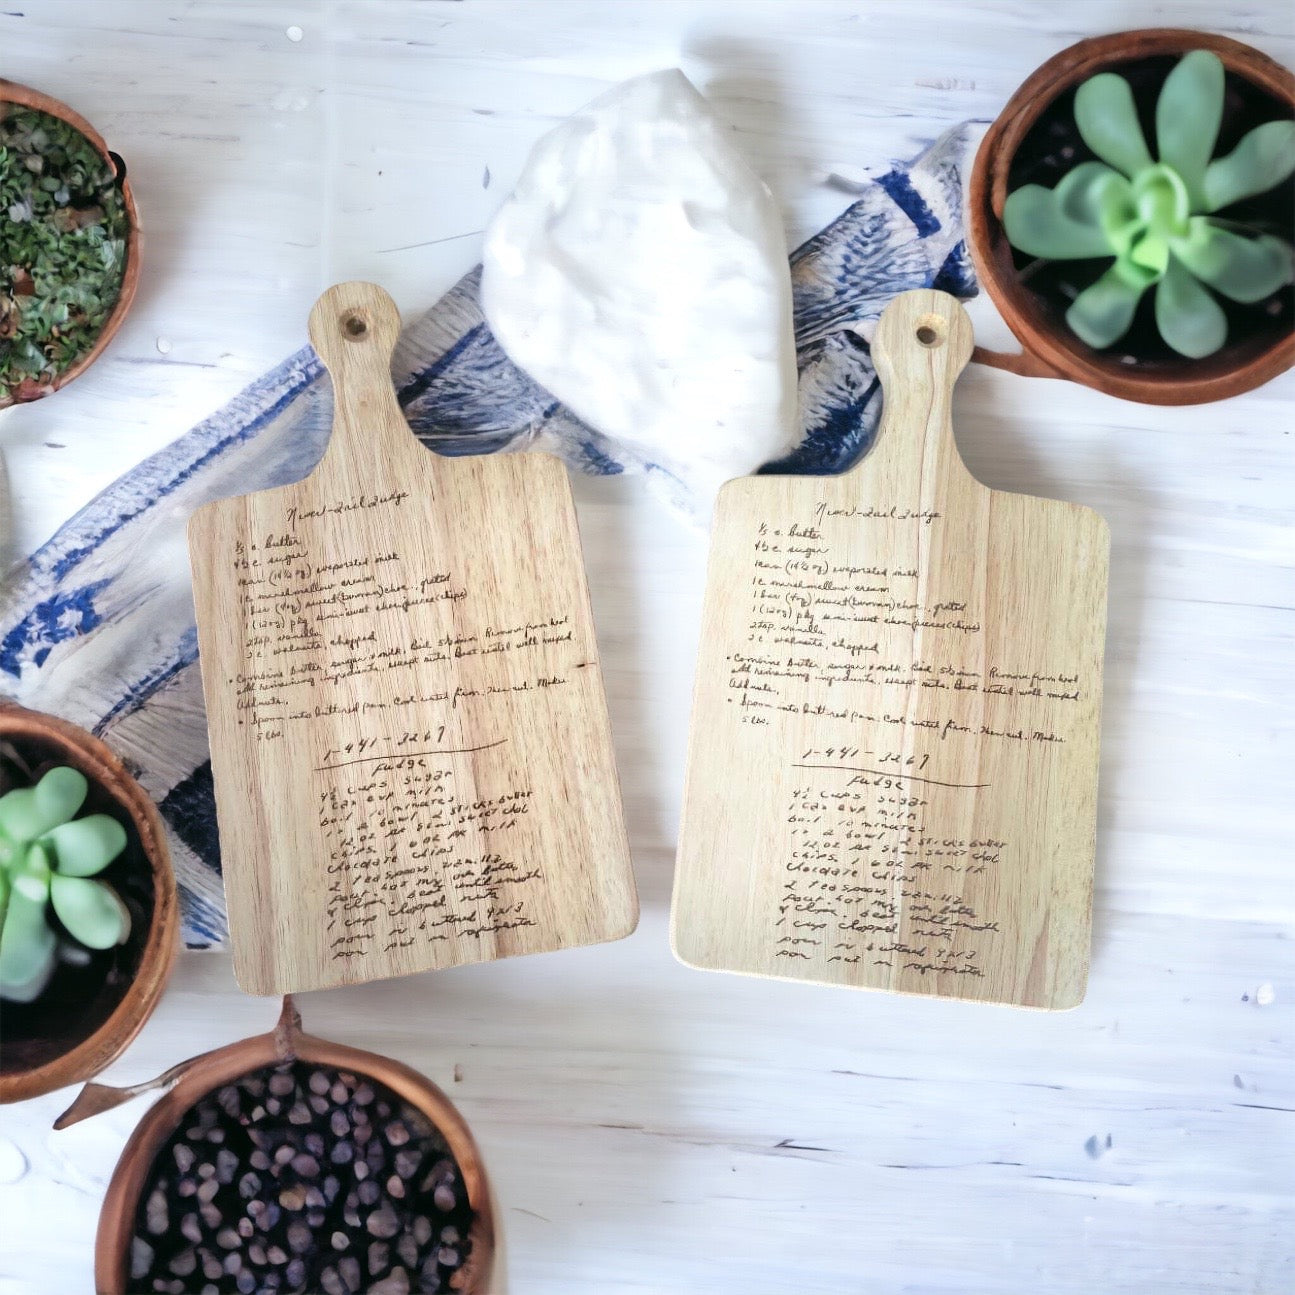 Never-Fail Fudge
⅓ c. butter
4½ c. sugar
1 can (14½ oz) evaporated milk
1 c marshmallow cream
1 bar (4oz) sweet (German) choc., grated
1 (12oz) pkg semi-sweet choc. pieces (chips)
2 tsp. vanilla
2 c. walnuts, chopped
• Combine butter, sugar & milk. Boil 5½ min Remove from heat
add remaining ingredients, except nuts. Beat until well mixed.
Add nuts.
• Spoon into buttered pan. Cool until firm, then cut. Makes
5 lbs.
1-441-3267
fudge
4½ cups sugar
1 can evp milk
boil 10 minutes
in a bowl 2 sticks butter
12 oz PK semi sweet chol
chips 1 6 oz PK milk
chocolate chips
2 teaspoons
pour hot mix on butter
& choc. beat until smooth
1 cup chopped nuts
pour in buttered 9x13
pan put in refrigerator
Never-Fail Fudge
⅓ c. butter
4½ c. sugar
1 can (14½ oz) evaporated milk
1 c marshmallow cream
1 bar (4oz) sweet (German) choc., grated
1 (12oz) pkg semi-sweet choc. pieces (chips)
2 tsp. vanilla
2 c. walnuts, chopped
• Combine butter, sugar & milk. Boil 5½ min Remove from heat
add remaining ingredients, except nuts. Beat until well mixed.
Add nuts.
• Spoon into buttered pan. Cool until firm, then cut. Makes
5 lbs.
1-441-3267
fudge
4½ cups sugar
1 can evp milk
boil 10 minutes
in a bowl 2 sticks butter
12 oz PK semi sweet chol
chips 1 6 oz PK milk
chocolate chips
2 teaspoons
pour hot mix on butter
& choc. beat until smooth
1 cup chopped nuts
pour in buttered 9x13
pan put in refrigerator